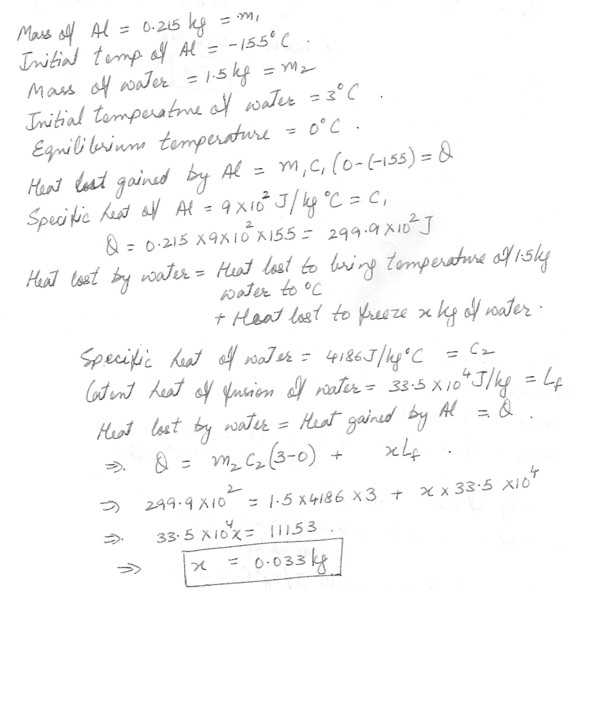 Mass of Al = 0.215 kg = m₁
Initial temp of Al = -155°C.
Mass of water = 1.5 kg = m₂
Initial temperature of water = 3°C.
Equilibrium temperature = 0°C.
Heat lost gained by Al = m₁C₁(0-(-155) = Q
Specific heat of Al = 9×10² J/kg °C = C₁
Q = 0.215 ×9×10²×155 = 299.9×10² J
Heat lost by water = Heat lost to bring temperature of 1.5kg
water to °C
+ Heat lost to freeze x kg of water.
Specific heat of water = 4186J/kg°C = C₂
Latent heat of fusion of water = 33.5 ×10⁴ J/kg = Lf
Heat lost by water = Heat gained by Al = Q.
⇒. Q = m₂C₂(3-0) + xLf.
⇒ 299.9×10² = 1.5×4186×3 + x×33.5×10⁴
⇒. 33.5×10⁴x = 11153.
⇒ x = 0.033 kg